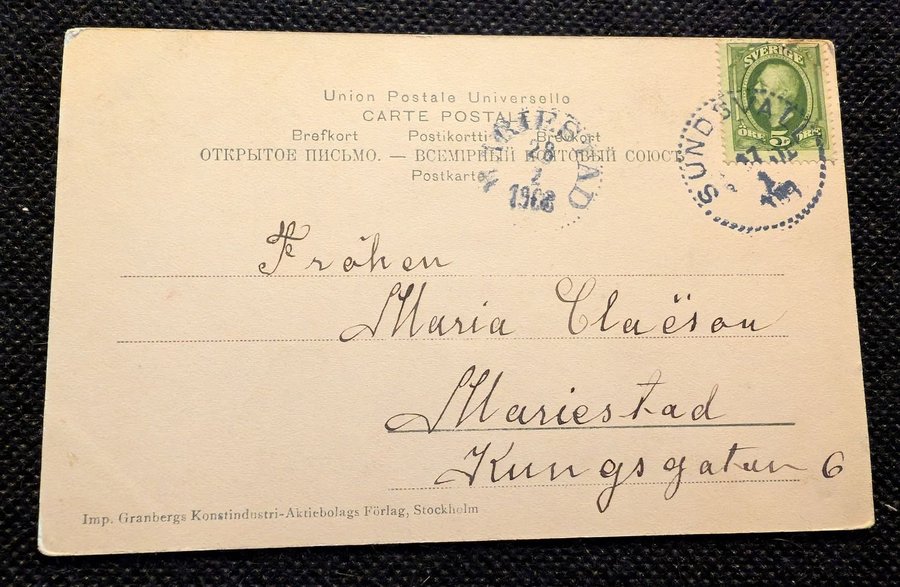 Union Postale Universelle
CARTE POSTALE
Brefkort Postikortti Brevkort
ОТКРЫТОЕ ПИСЬМО. — ВСЕМІРНЫЙ ПОЧТОВЫЙ СОЮСЪ
Postkarte
SVERIGE
5
ÖRE ÖRE
SUNDSVALL
MARIESTAD
28
2
1908
Fröken
Maria Claëson
Mariestad
Kungsgatan 6
Imp. Granbergs Konstindustri-Aktiebolags Förlag, Stockholm